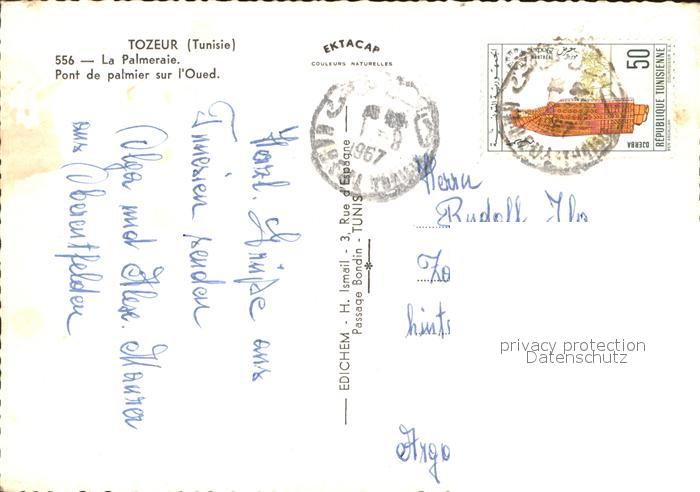 TOZEUR (Tunisie)
556 — La Palmeraie.
Pont de palmier sur l'Oued.
EKTACAP
COULEURS NATURELLES
50
REPUBLIQUE TUNISIENNE
DJERBA
MONTREAL
1967
Herzl. Grüße aus
Tunesien senden
Olga und Alex. Maurer
aus Oberentfelden
EDICHEM - H. Ismail - 3, Rue d'Espagne
Passage Bondin - TUNIS
Herrn
Rudolf
hints
privacy protection
Datenschutz